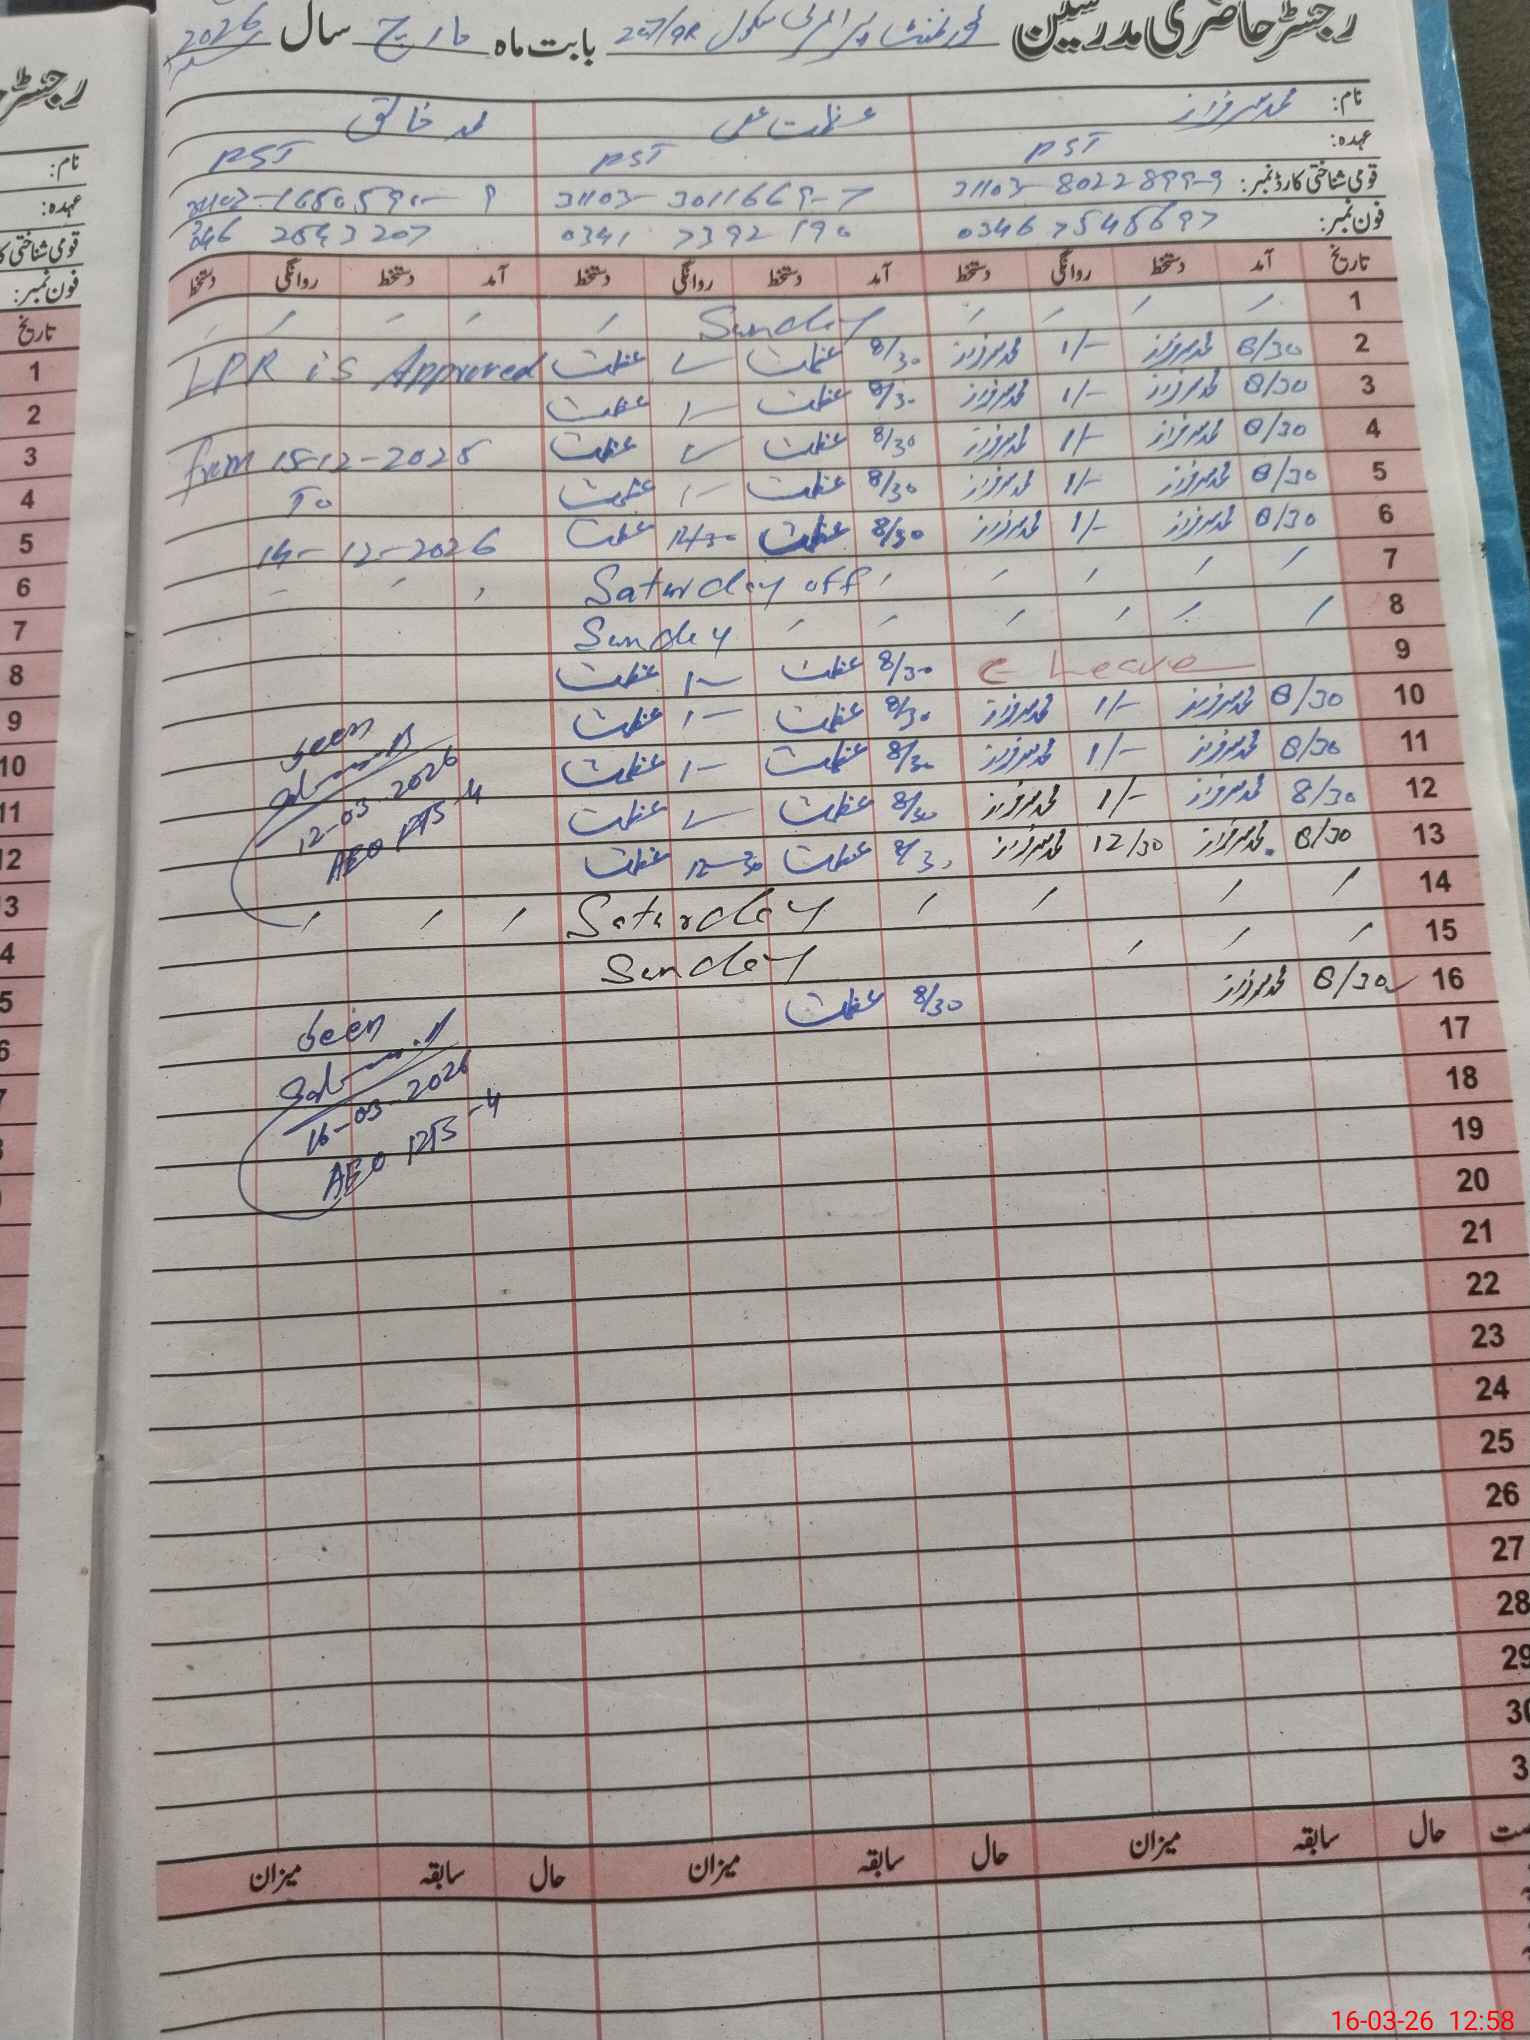 رجسٹر حاضری مدرسین گورنمنٹ پرائمری سکول 247/9R بابت ماہ مارچ سال 2026
نام: محمد سرفراز عظمت علی محمد خالق
عہدہ: PST PST PST
قومی شناختی کارڈ نمبر: 31103-8022899-9 31103-3011669-7
فون نمبر: 0346 7545697 0341 7392190 0346 2543207
تاریخ آمد دستخط روانگی دستخط آمد دستخط روانگی دستخط آمد دستخط روانگی دستخط
1 Sunday
2 8/30 محمد سرفراز 1/- محمد سرفراز 8/30 عظمت 1/- عظمت LPR is Approved
3 8/30 محمد سرفراز 1/- محمد سرفراز 8/30 عظمت 1/- عظمت
4 8/30 محمد سرفراز 1/- محمد سرفراز 8/30 عظمت 1/- عظمت from 15-12-2025
5 8/30 محمد سرفراز 1/- محمد سرفراز 8/30 عظمت 1/- عظمت To
6 8/30 محمد سرفراز 1/- محمد سرفراز 8/30 عظمت 12/30 عظمت 14-12-2026
7 Saturday off
8 Sunday
9 C Leave 8/30 عظمت 1- عظمت
10 8/30 محمد سرفراز 1/- محمد سرفراز 8/30 عظمت 1- عظمت
11 8/30 محمد سرفراز 1/- محمد سرفراز 8/30 عظمت 1- عظمت
12 8/30 محمد سرفراز 1/- محمد سرفراز 8/30 عظمت 1/- عظمت
13 8/30 محمد سرفراز 12/30 محمد سرفراز 8/30 عظمت 12-30 عظمت
Seen
12-03-2026
AEO
14 Saturday
15 Sunday
16 8/30 محمد سرفراز 8/30 عظمت
Seen
16-03-2026
AEO
17
18
19
20
21
22
23
24
25
26
27
28
29
30
3
حال سابقہ میزان حال سابقہ میزان حال سابقہ میزان
رجسٹر
نام:
عہدہ:
قومی شناختی
فون نمبر:
تاریخ
1
2
3
4
5
6
7
8
9
10
11
12
3
4
5
6
7
16-03-26 12:58